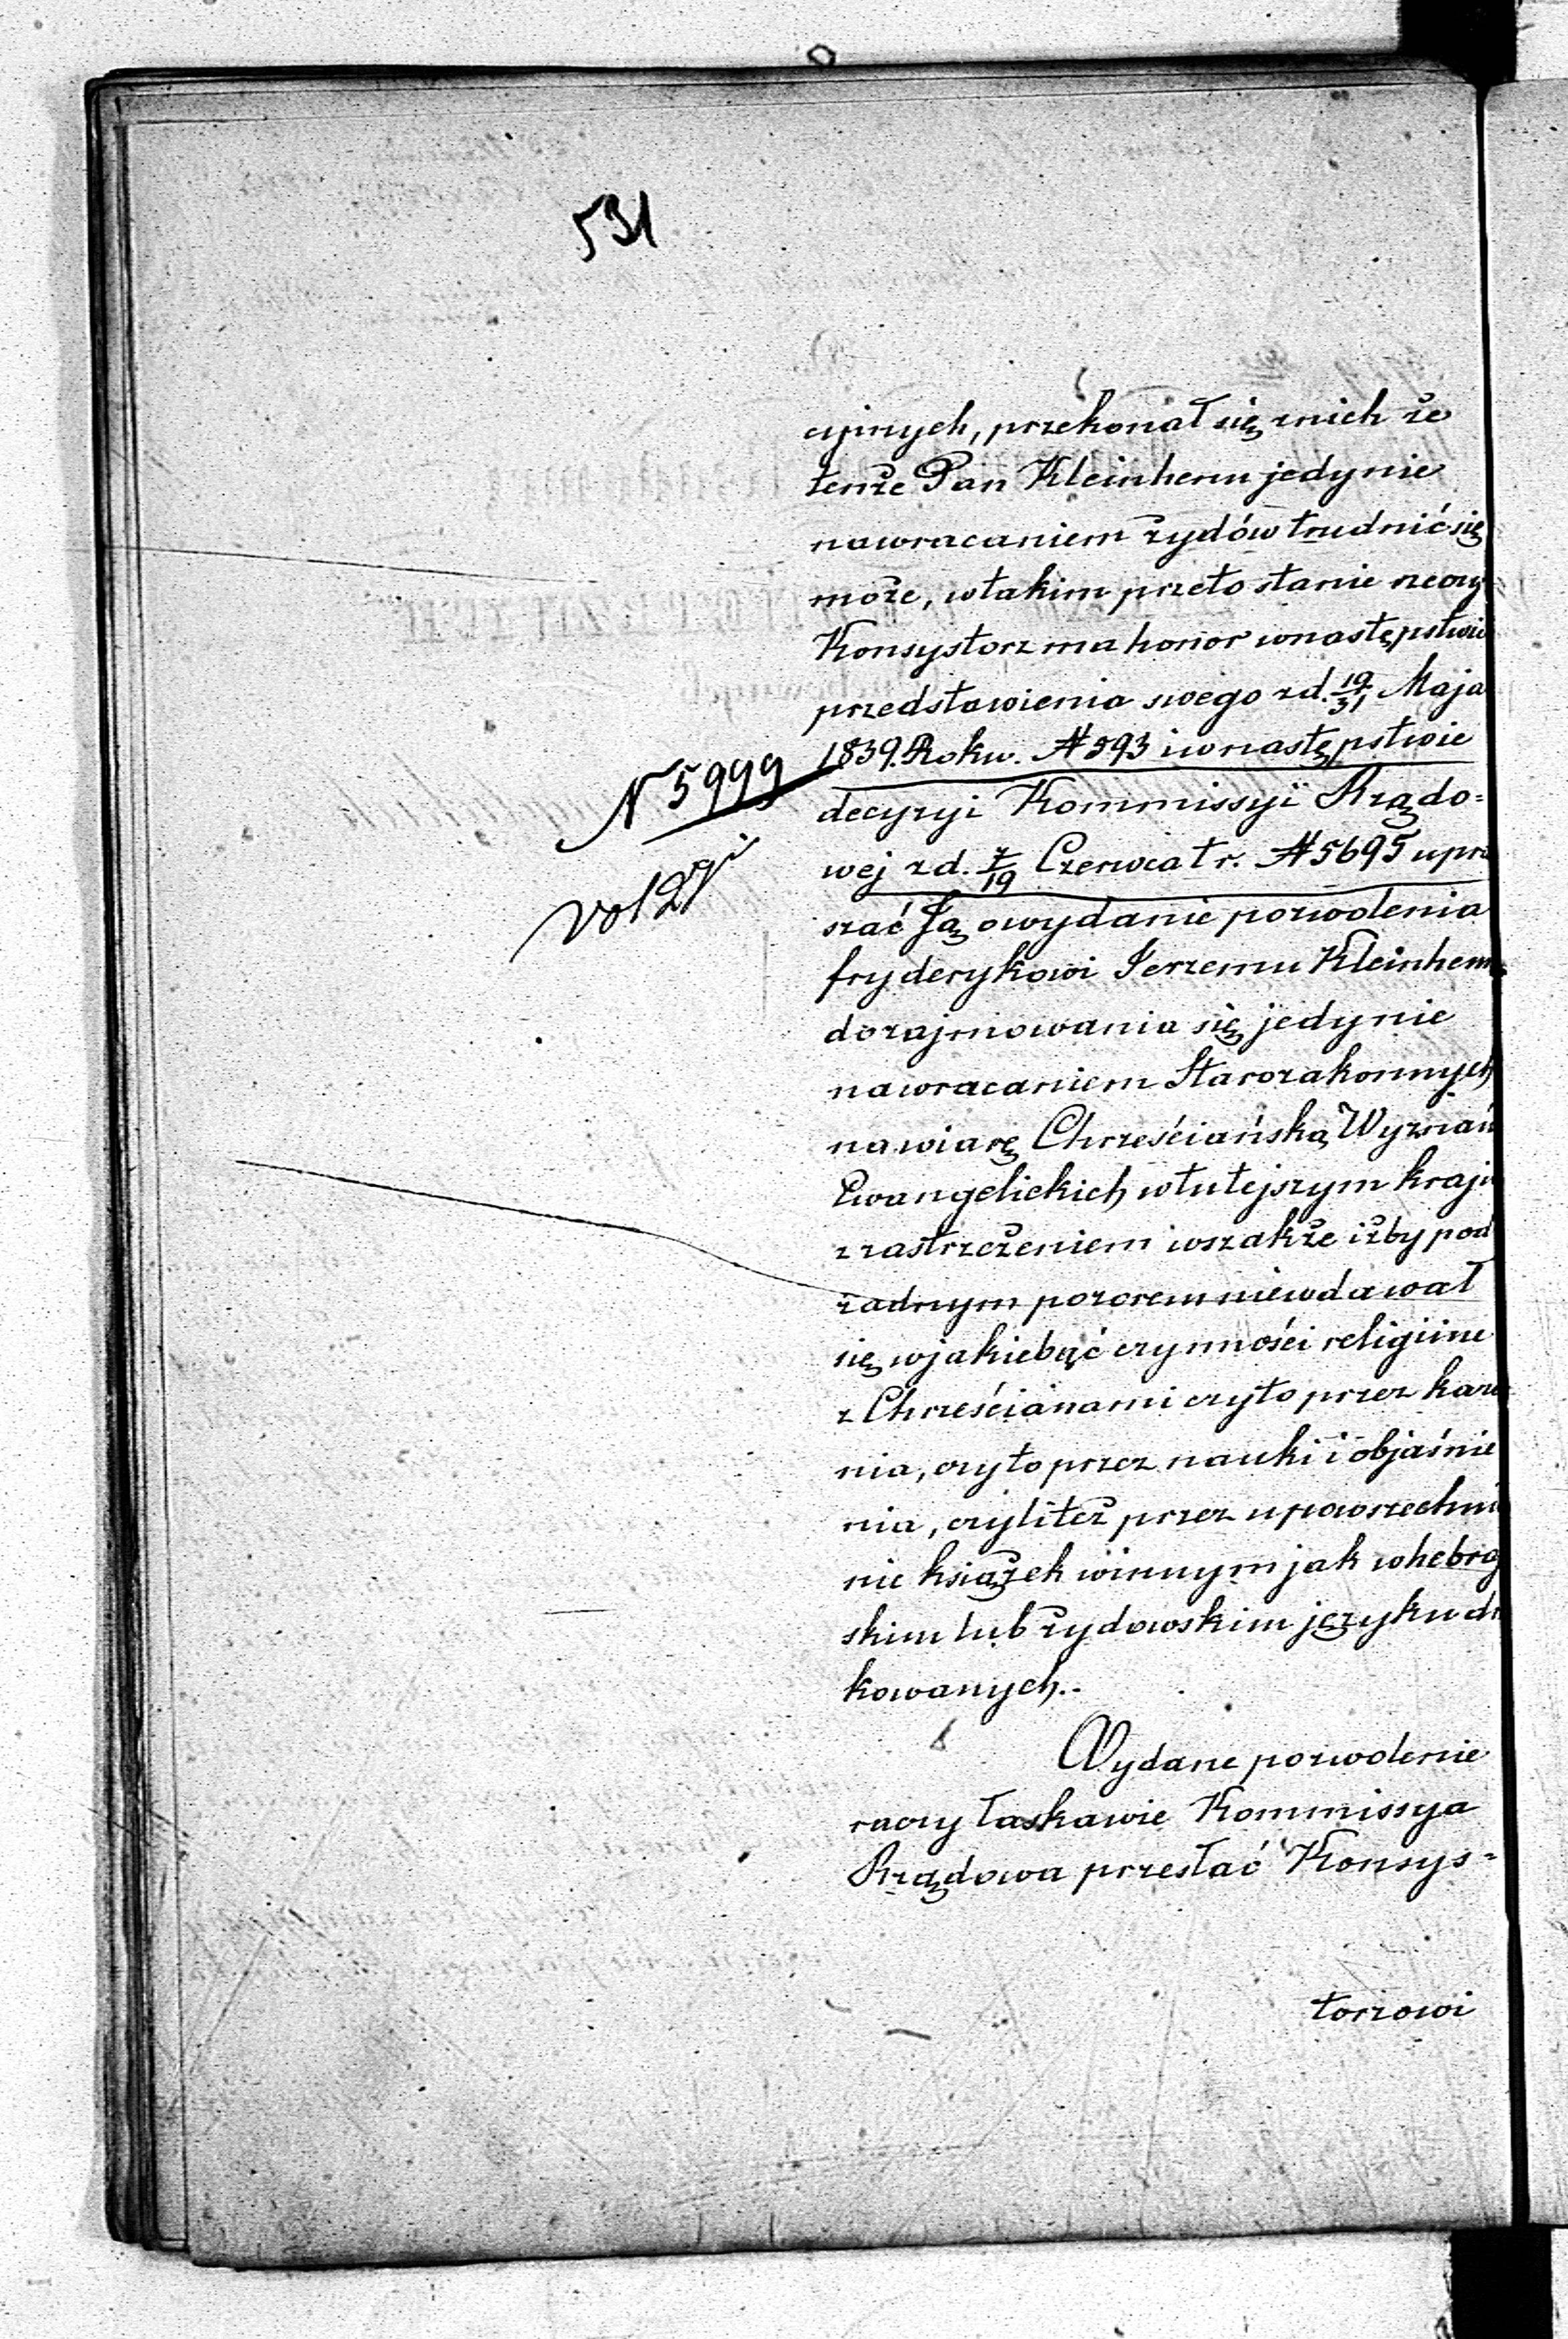 531
cyjnych, przekonał się z nich że
tenże Pan Kleinhenn jedynie
nawracaniem żydów trudnić się
może, w takim przeto stanie rzeczy
Konsystorz ma honor w następstwie
przedstawienia swego z d. 19/31 Maja
1839. Roku. N 593 i w następstwie
N 5999
decyzyi Kommissyi Rządo=
wej z d. 7/19 Czerwca t r. N 5695 upra
vol 27
szać Ją o wydanie pozwolenia
fryderykowi Jerzemu Kleinhenn
do zajmowania się jedynie
nawracaniem Starozakonnych
na wiarę Chrześciańską Wyznań
Ewangelickich w tutejszym kraju
z zastrzeżeniem wszakże iżby pod
żadnym pozorem nie wdawał
się w jakiebąć czynności religiine
z Chrześcianami czyto przez kaza
nia, czyto przez nauki i objaśnie
nia, czyliteż przez upowszechnie
nie książek w innym jak w hebraj
skim lub żydowskim języku dru
kowanych.-
Wydane pozwolenie
raczy łaskawie Kommissya
Rządowa przesłać Konsys=
torzowi